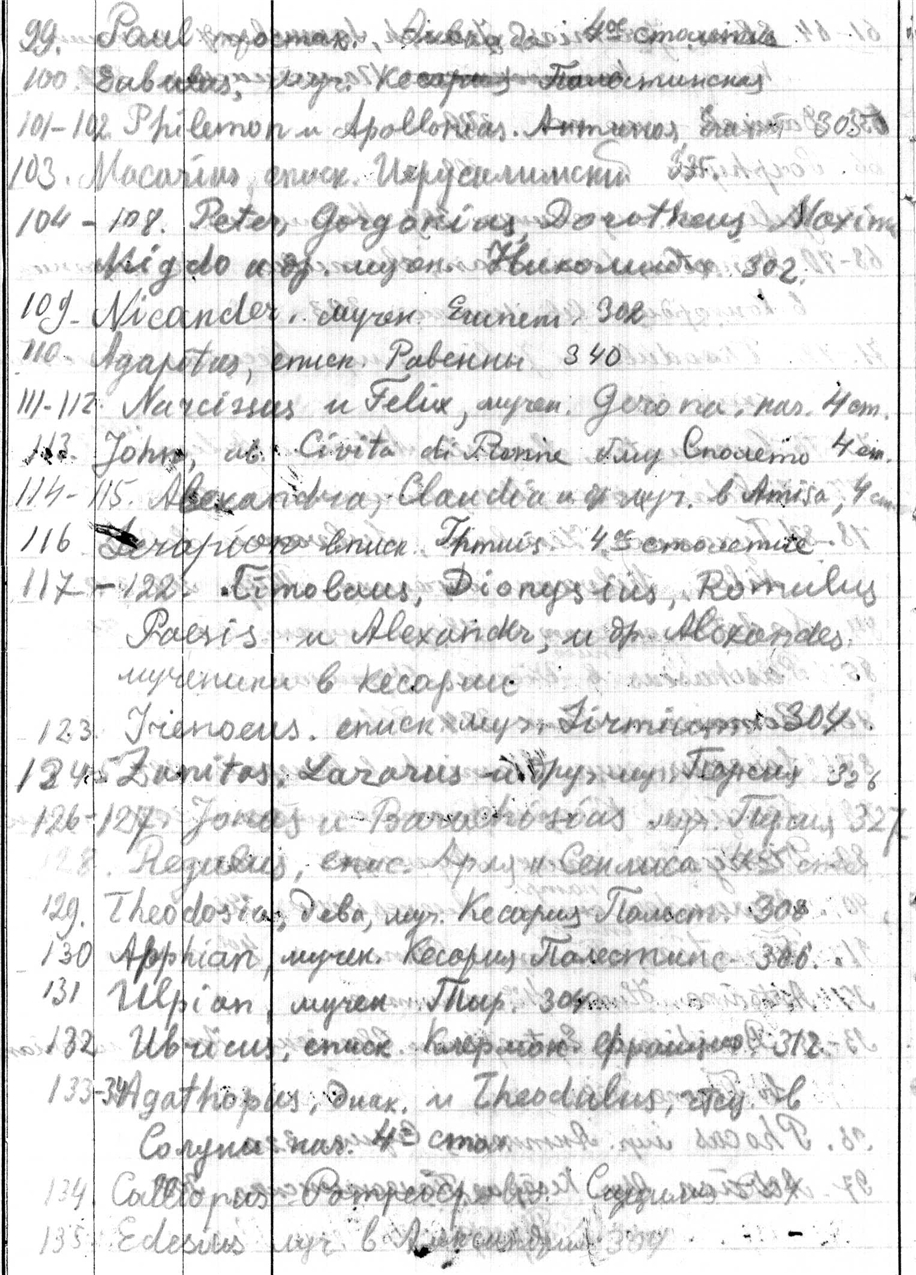 99. Paul простак., 4ое столетие
100. муч. Кесария Палестинская
101-102 Philemon и Apollonius. 305
103. Macarius, еписк. Иерусалимский 335.
104 - 108. Peter, Gorgonius, Dorotheus Maxima
Migdo и др. мучен. Никомидия 302.
109. Nicander. мучен. Египет. 302
110. Agapitus, еписк. Равенны 340
111-112. Narcissus и Felix, мучен. Gerona. нач. 4 ст.
113. John, ab. Civita di Сполето 4 ст.
114-115. Alexandra, Claudia и муч. в Amisa, 4
116 Serapion еписк. Тмуис 4ое столетие
117 - 122. Timolaus, Dionysius, Romulus
Paesis и Alexander, и др. Alexander
мученики в Кесарии
123. Irenaeus. еписк муч. 304.
124-5 Zanitas, Lazarus и друг. муч Персия 326
126-127 Jonas и Barachisias муч. Персия 327
128. Regulus, епис. Арля и Сенлиса
129. Theodosia, дева, муч. Кесария Палест. 308
130 Apphian, мучен. Кесария Палестинс. 306.
131 Ulpian, мучен. Тир. 306
132 Ubricus, еписк. Клермон. Франция 312.
133-34 Agathopus, диак. и Theodulus, чтец. в
Солуни нач. 4ое стол
134 Calliopus
135 Edesius муч. в Александрии